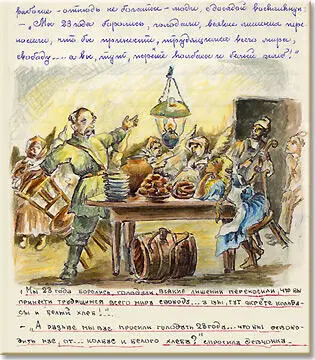 рабочие – отнюдь не богатые – люди, с досадой воскликнул:
– „Мы 23 года боролись, голодали, всякие лишения пере
носили, что бы принести, трудящимся всего мира,
свободу.... а вы, тут, жрёте колбасы и белый хлеб!"
„Мы 23 года боролись, голодали, всякие лишения переносили, что бы
принести трудящимся всего мира свободу... а вы, тут жрёте колба-
сы и белый хлеб!..."
– „А разве мы вас просили голодать 23 года... что бы освобо-
дить нас, от... колбас и белого хлеба?" спросила девчонка.